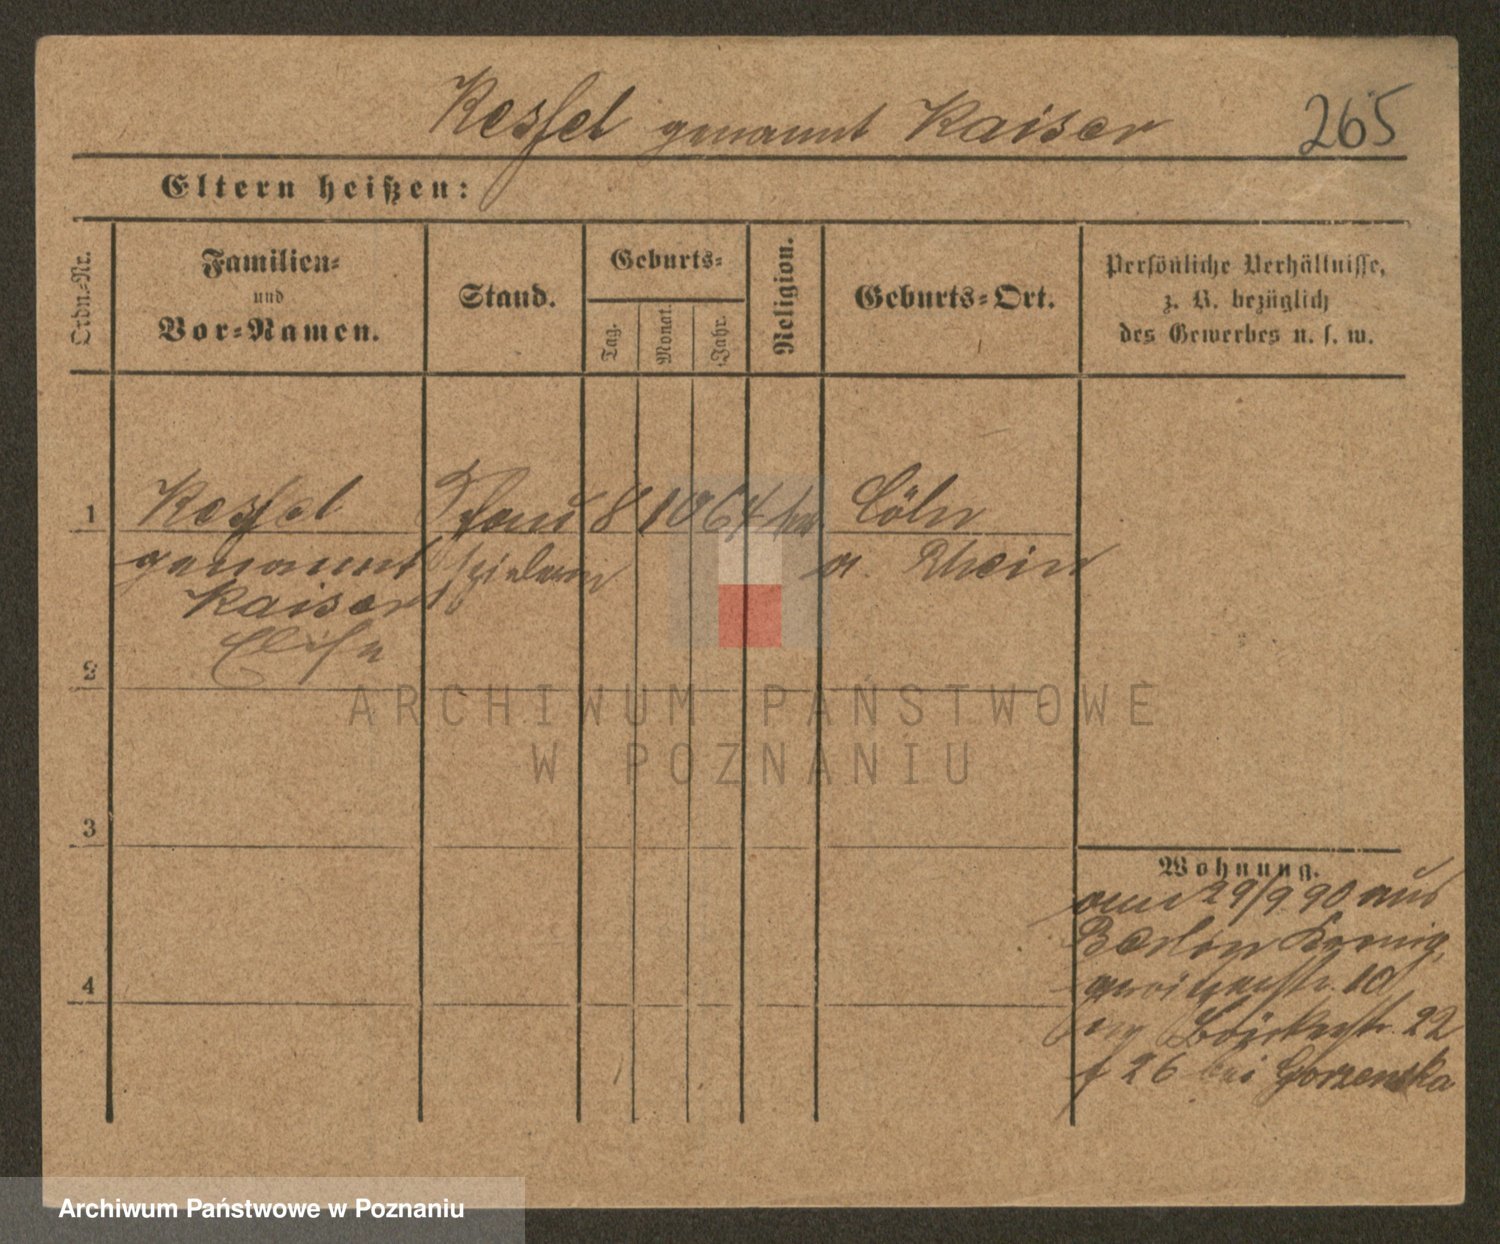 Kessel genannt Kaiser 265
Eltern heißen:
Ordn.-Nr.
Familien-
und
Vor-Namen.
Stand.
Geburts-
Tag.
Monat.
Jahr.
Religion.
Geburts-Ort.
Persönliche Verhältnisse,
z. B. bezüglich
des Gewerbes u. s. w.
1 Kessel 8 10 64 Cöln
genannt a. Rhein
Kaiser
Elise
2
3
4
Wohnung.
29/9 90 aus
Berlin
10
22
26 bei Gorzenska
ARCHIWUM PAŃSTWOWE
W POZNANIU
Archiwum Państwowe w Poznaniu